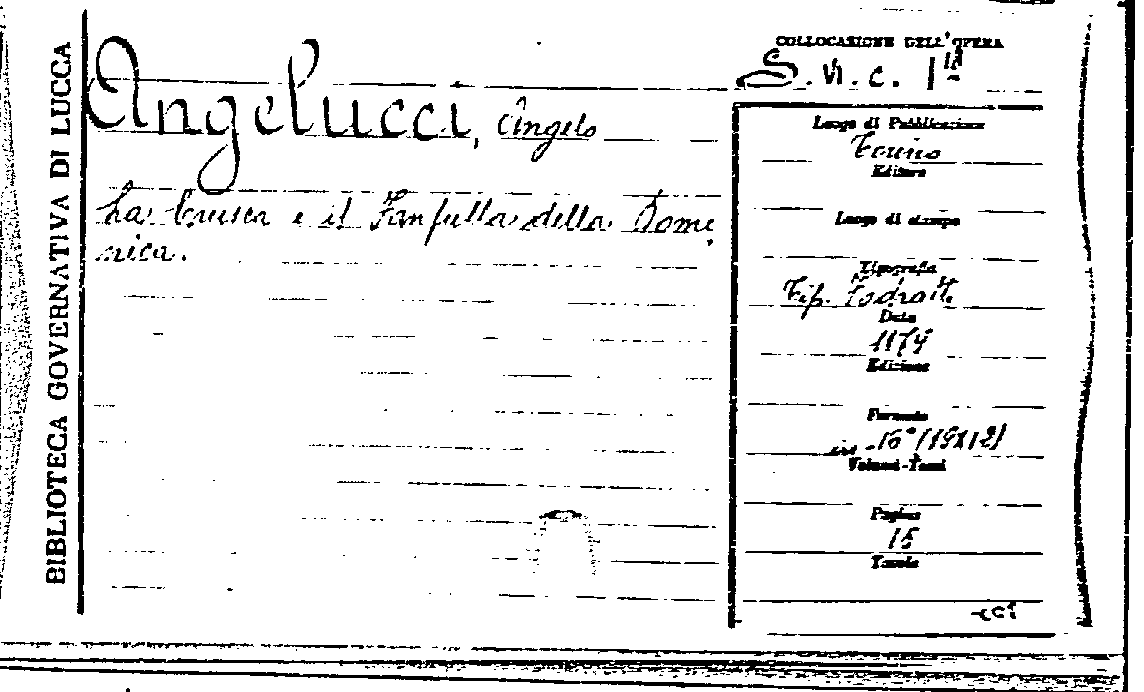 BIBLIOTECA GOVERNATIVA DI LUCCA
Angelucci, Angelo
La Crusca e il Fanfulla della Dome
nica.
COLLOCAZIONE DELL'OPERA
Luogo di Pubblicazione
Torino
Editore
Luogo di stampa
Tipografia
Tip.
Data
Edizione
Formato
in-16° (19x12)
Volumi-Tomi
Pagine
15
Tavole